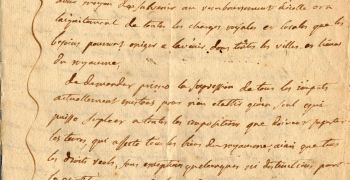 au remboursement direct ou a
l'acquitement de toutes les charges royales et locales que les
besoins pourront exiger a l'avenir dans toutes les villes et lieux
du royaume
De demander la supression de tous les impots
actuellement existans pour n'en etablir qu'un seul qui
puisse supleer a toutes les impositions que doivent suporter
les terres, qui affecte tous les biens du royaume ainsi que tous
les droits réels, sans exception quelconque ni distinction pour